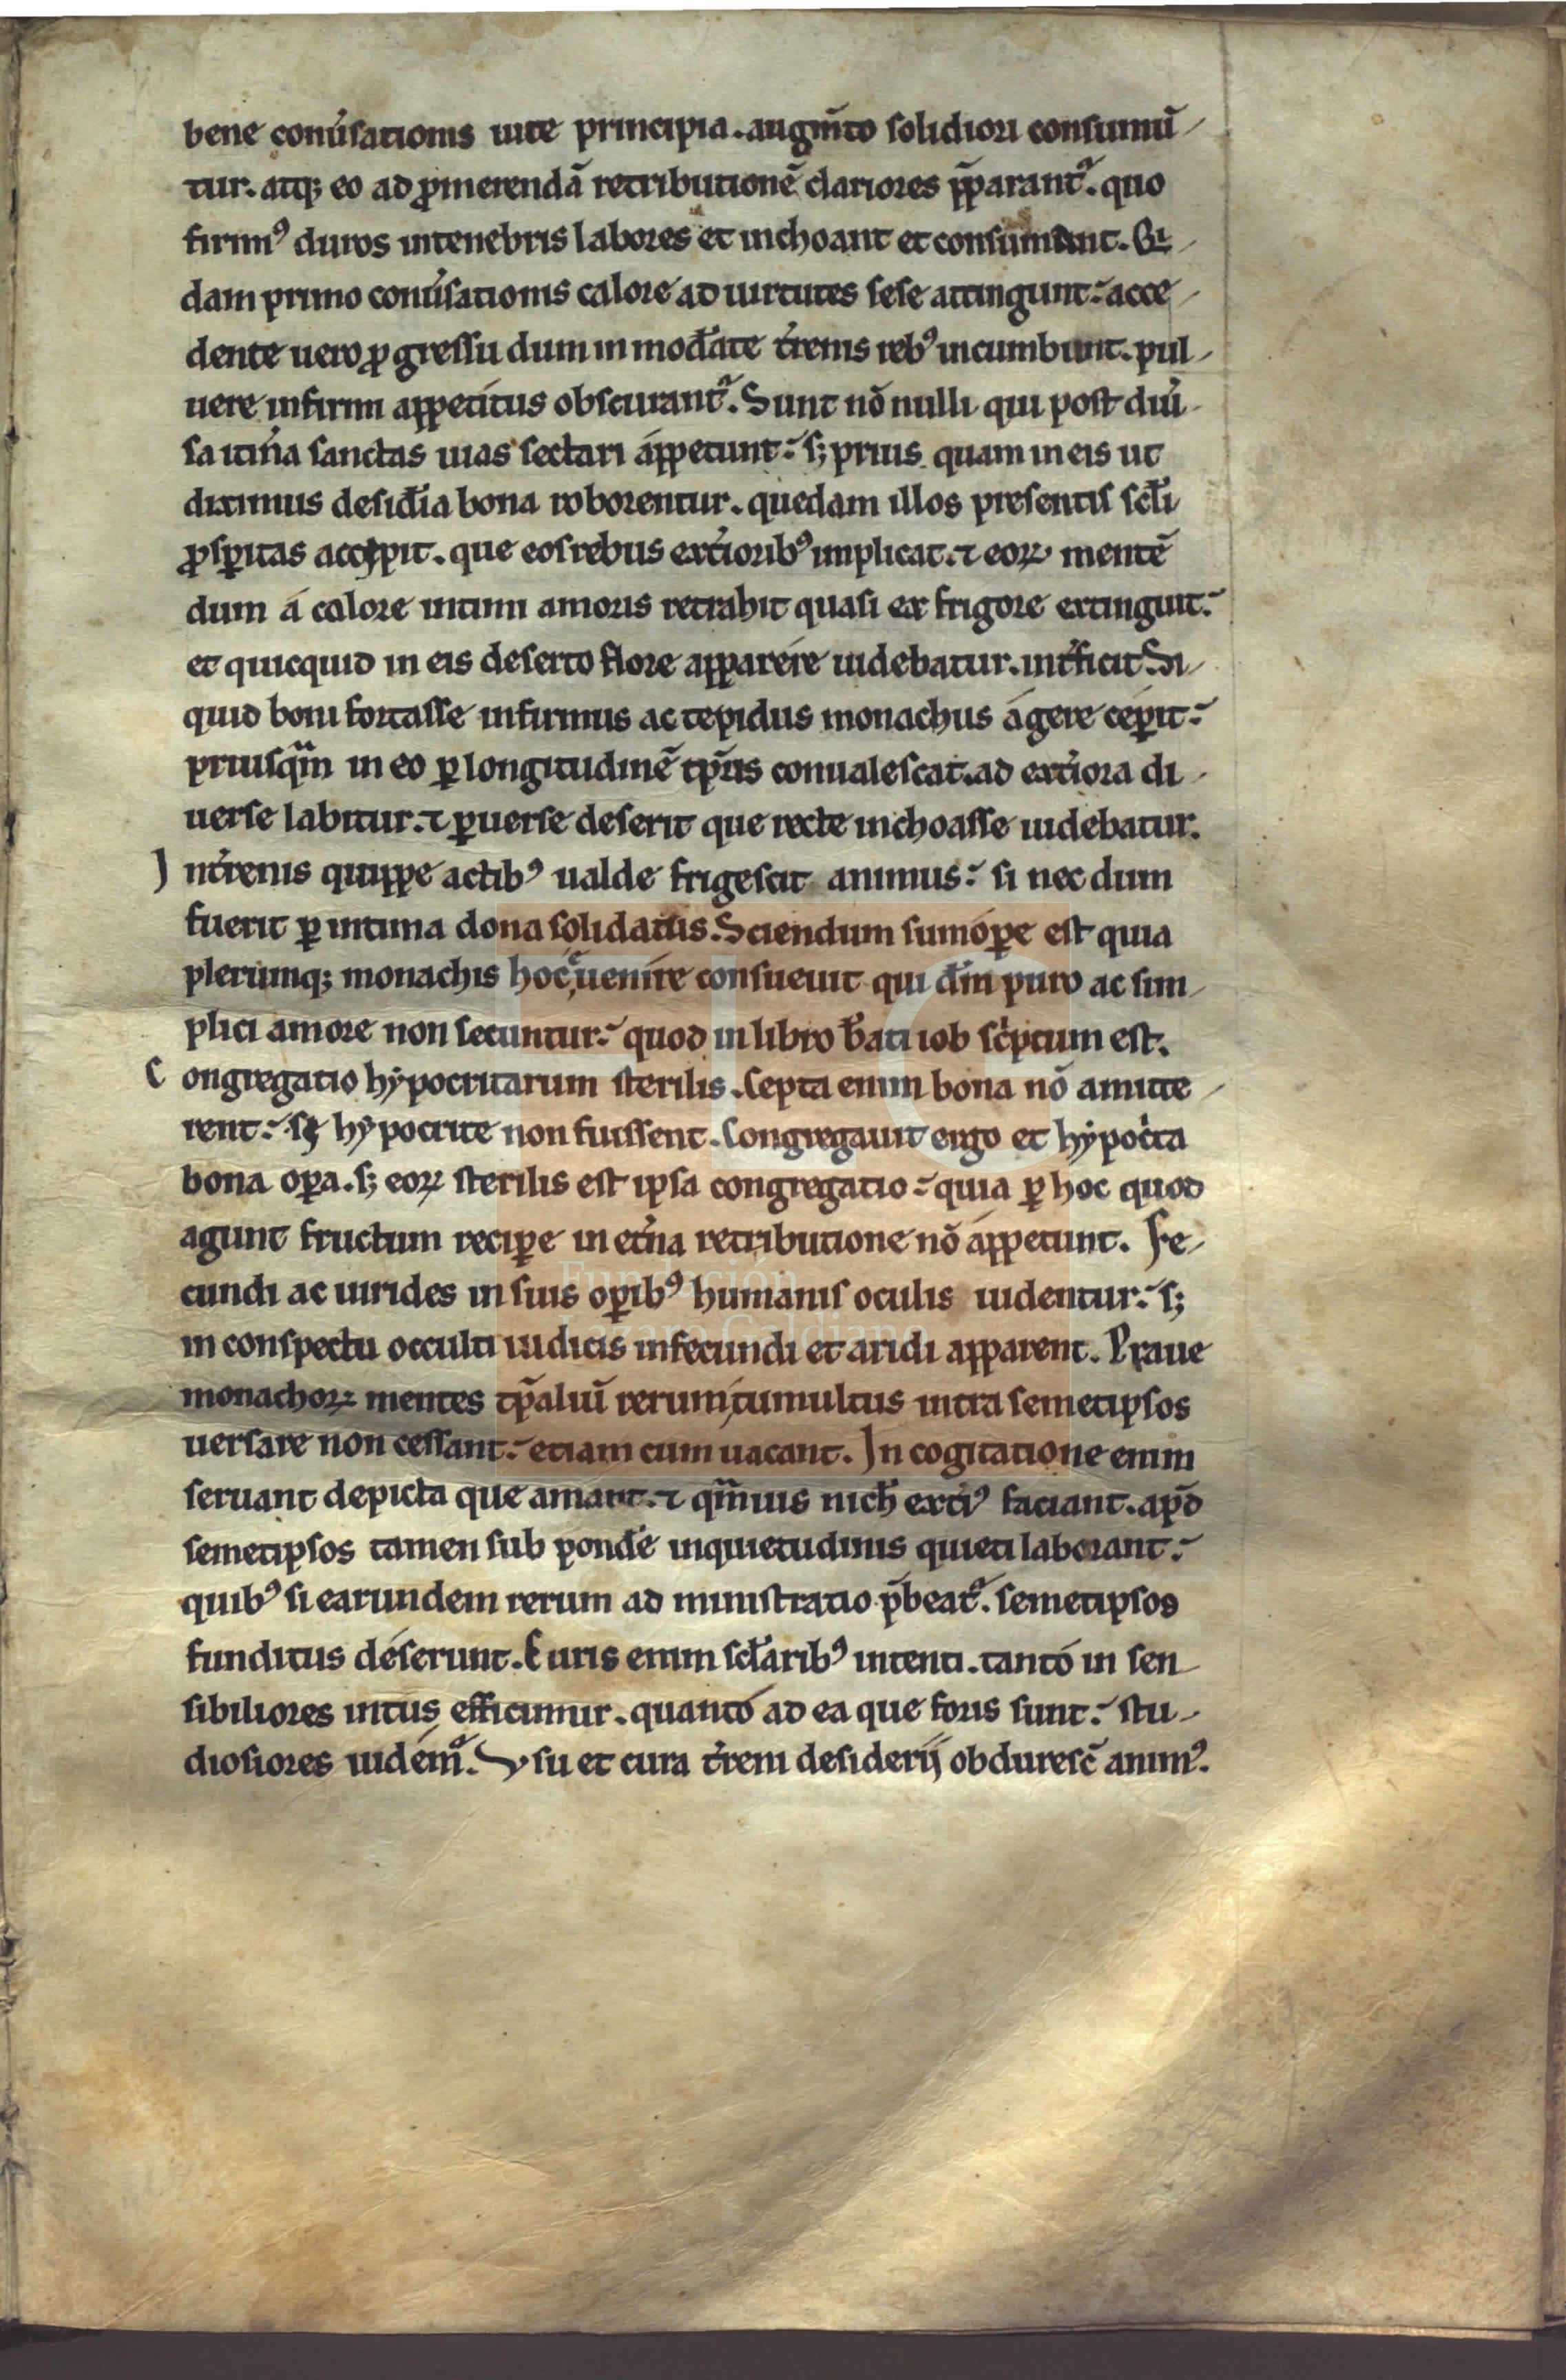 bene conu̓sationis uite principia. augm̄to solidiori consumū
tur. atq; eo ad ꝓmerendā retributionē clariores p̄parant᷑. quo
firmiꝰ duros intenebris labores et inchoant et consumant. Qi
dam primo conu̓sationis calore ad uirtutes sese attingunt: acce
dente uero ꝓgressu dum in mod̓ate t̓renis rebꝰ incumbunt. pul
uere infirmi appetitus obscurant᷑. Sunt nō nulli qui post diu̓
sa itin̓a sanctas uias sectari appetunt: s; prius quam in eis ut
diximus desid̓ia bona roborentur. quedam illos presentis scl̓i
ꝓsꝑitas accipit. que eos rebus ext̓ioribꝰ implicat. ⁊ eoꝝ mentē
dum á calore intimi amoris retrahit quasi ex frigore extinguit:
et quicquid in eis deserto flore apparére uidebatur. int̓ficit. Si
quid boni fortasse infirmus ac tepidus monachus ágere cepit:
priusq̄m in eo ꝑ longitudinē tp̄ris conualescat. ad ext̓iora di
uerse labitur. ⁊ ꝑuerse deserit que recte inchoasse uidebatur.
J nt̓renis quippe actibꝰ ualde frigescit animus: si nec dum
fuerit ꝑ intima dona solidatus. Sciendum sumóꝑe est quia
plerumq; monachis hoc euenire consueuit qui dm̄ puro ac sim
plici amore non secuntur: quod in libro b̄ati iob sc̓ptum est.
C ongregatio hẏpocritarum sterilis. Cepta enim bona nō amitte
rent: si hẏpocrite non fuissent. Congregauit ergo et hẏpoc̓ta
bona oꝑa. s; eoꝝ sterilis est ipsa congregatio: quia ꝑ hoc quod
agunt fructum reciꝑe in et̓na retributione nō appetunt. Fe
cundi ac uirides in suis oꝑibꝰ humanis oculis uidentur: s;
in conspectu occulti iudicis infecundi et aridi apparent. Praue
monachoꝝ mentes tp̄aliū rerum tumultus intra semetipsos
uersare non cessant: etiam cum uacant. Jn cogitatione enim
seruant depicta que amant. ⁊ q̄muis nich̓ ext̓iꝰ faciant. apd̄
semetipsos tamen sub pond̓e inquietudinis quieti laborant:
quibꝰ si earundem rerum ad ministratio p̄beat᷑. semetipsos
funditus déserunt. Curis enim scl̓aribꝰ intenti. tantó in sen
sibiliores intus efficimur. quantó ad ea que foris sunt: stu
diosiores uidem᷑. Usu et cura t̓reni desiderij obduresc̄ animꝰ.
Fundación
Lázaro Galdiano